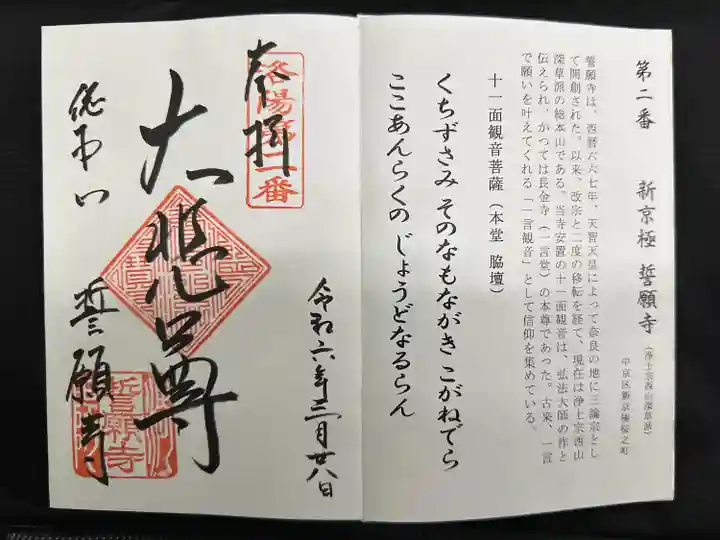 第二番 新京極 誓願寺
(浄土宗西山深草派)
中京区新京極桜之町
誓願寺は、西暦六六七年、天智天皇によって奈良の地に三論宗とし
て開創された。以来、改宗と二度の移転を経て、現在は浄土宗西山
深草派の総本山である。当寺安置の十一面観音は、弘法大師の作と
伝えられ、かつては長金寺(一言堂)の本尊であった。古来、一言
で願いを叶えてくれる「一言観音」として信仰を集めている。
十一面観音菩薩(本堂 脇壇)
くちずさみ そのなもながき こがねでら
ここあんらくの じょうどなるらん
奉拝
洛陽第二番
大悲尊
令和六年三月廿八日
誓願寺
誓願寺